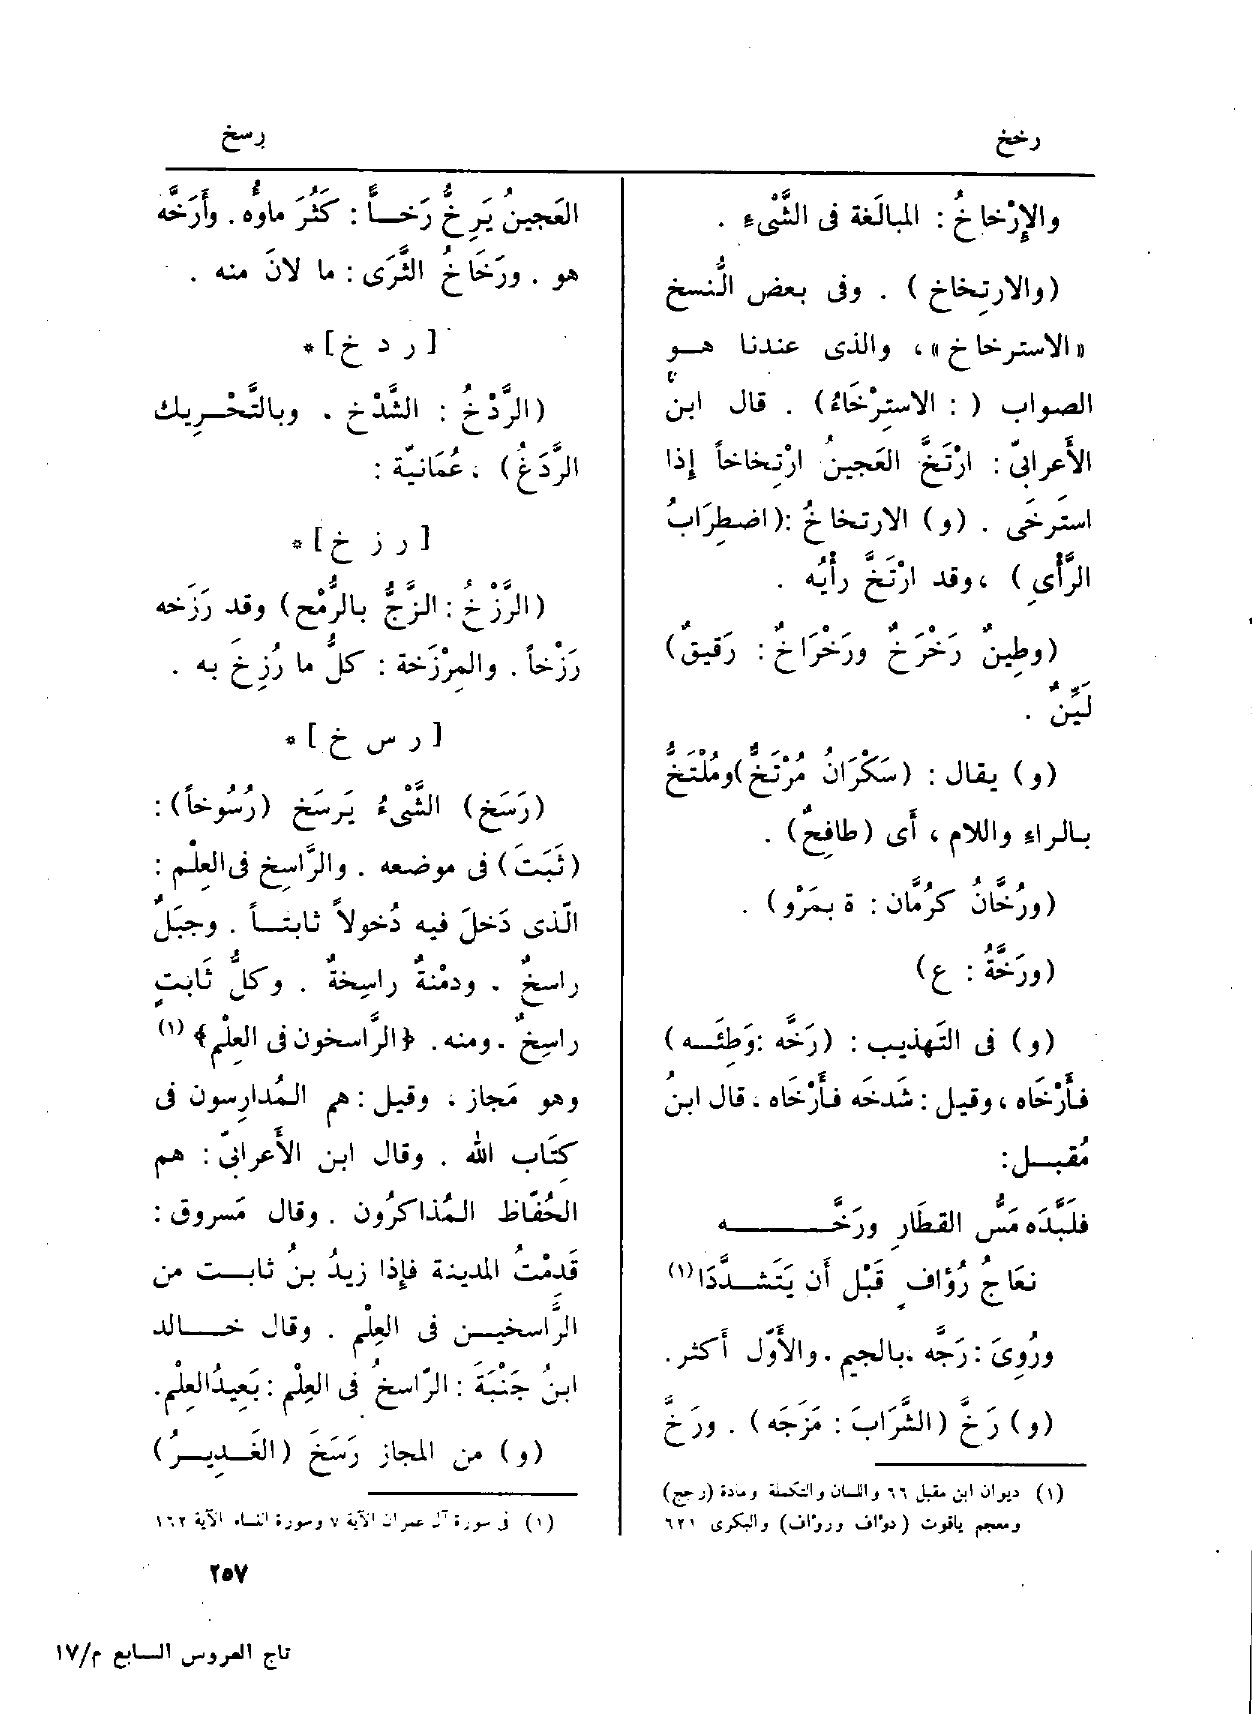 رخخ
رسخ
والإِرْخاخُ : المبالَغة فى الشَّىْءِ .
(والارتِخاخ) . وفى بعض النُّسخ
«الاسترخاخ»، والذى عندنا هــو
الصواب ( : الاستِرْخَاءُ) . قال ابنُ
الأَعرابىّ : ارْتَخَّ العَجينُ ارْتِخاخاً إِذا
استَرخَى . (و) الارتخاخُ :(اضطِرَابُ
الرَّأْىِ) ،وقد ارْتَخَّ رأْيُه .
(وطِينٌ رَخْرَخٌ ورَخْرَاخٌ : رَقيقٌ)
لَيِّنٌ .
(و) يقال : (سَكْرَانُ مُرْتَخٌّ)ومُلْتَخٌّ
بالراءِ واللام ، أَى (طافِحٌ) .
(ورُخَّانُ كرُمَّان : ة بمَرْو) .
(ورَخَّةُ : ع)
(و) فى التَهذيب : (رَخَّه :وَطِئَــه)
فأَرْخَاه ،وقيل : شَدَخَه فأَرْخَاه ،قال ابنُ
مُقبـل:
فلَبَّدَه مَسُّ القطَارِ ورَخَّــــــه
نعَاجُ رُؤَافٍ قَبْل أَن يَتَشدَّدَا(١)
ورُوِىَ : رَجَّه ،بالجيم .والأَوّل أَكثر.
(و) رَخَّ (الشَّرَابَ : مَزَجَه) . ورَخَّ
(١) ديوان ابن مقبل ٦٦ واللسان والتكملة ومادة (رجج)
ومعجم ياقوت (دوْاف وروْاف) والبكرى ٦٢١
العَجينُ يَرِخُّ رَخــاًّ : كَثُرَ ماوُه . وأَرَخَّه
هو . ورَخَاخُ الثَّرَى : ما لانَ منه .
[ ر د خ ] *
(الرَّدْخُ : الشَّدْخ . وبالتَّحْريك
الرَّدَغُ) ، عُمَانيّة :
[ ر ز خ ] *
(الرَّزْخُ : الزَّجُّ بالرُّمْح) وقد رَزَخه
رَزْخاً . والمِرْزَخة : كلُّ ما رُزِخَ به .
[ ر س خ ] *
(رَسَخ) الشَّىْءُ يَرسَخ (رُسُوخاً) :
(ثَبَتَ) فى موضعه . والرَّاسِخ فى العِلْم :
الّذى دَخلَ فيه دُخولاً ثابتــاً . وجبَلٌ
راسخٌ . ودمْنةٌ راسِخةٌ . وكلُّ ثَابتٍ
راسِخٌ .ومنه . ﴿الرَّاسخون فى العِلْم﴾ (١)
وهو مَجاز ، وقيل : هم المُدارِسون فى
كِتَاب الله . وقال ابن الأَعرابىّ : هم
الحُفّاظ المُذاكرُون . وقال مَسروق :
قَدِمْتُ المدينة فإِذا زيدُ بنُ ثابت من
الرَّاسخيـن فى العِلْم . وقال خــالد
ابنُ جَنْبَةَ : الرّاسخُ فى العِلْم : بَعِيدُ العِلْم.
(و) من المجاز رَسَخَ (الغَـديـرُ)
(١) فى سورة آل عمران الآية ٧ وسورة النساء الآية ١٦٢
٢٥٧
تاج العروس السابع م/١٧